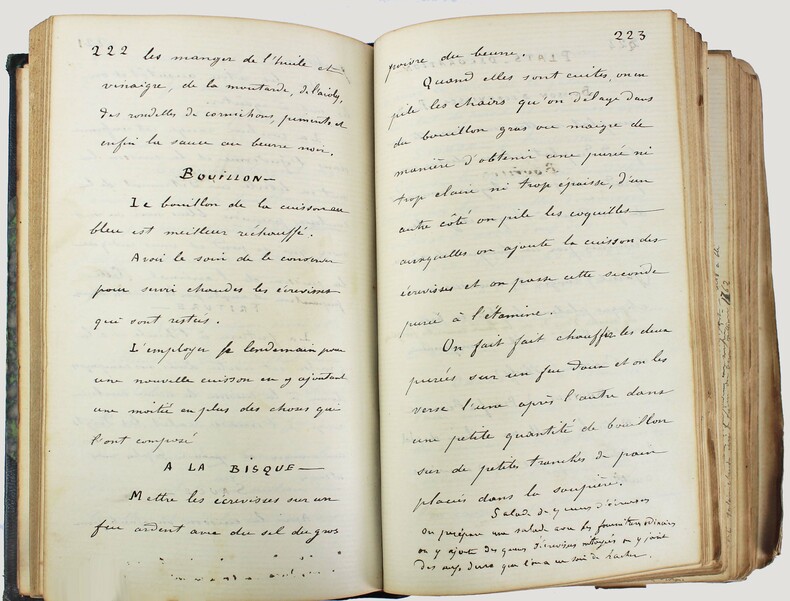 222
les manger de l'huile et
vinaigre, de la moutarde, de l'aioly,
des rondelles de cornichons, piments et
enfin la sauce au beurre noir.
BOUILLON—
Le bouillon de la cuisson au
bleu est meilleur réchauffé.
Avoir le soin de le conserver
pour servir chaudes les écrevisses
qui sont restées.
L'employer le lendemain pour
une nouvelle cuisson en y ajoutant
une moitié en plus des choses qui
l'ont composé
A LA BISQUE—
Mettre les écrevisses sur un
feu ardent avec du sel du gros
223
poivre du beurre.
Quand elles sont cuites, on en
pile les chairs qu'on délaye dans
du bouillon gras ou maigre de
manière d'obtenir une purée ni
trop claire ni trop épaisse, d'un
autre côté on pile les coquilles
auxquelles on ajoute la cuisson des
écrevisses et on passe cette seconde
purée à l'étamine.
On fait fait chauffer les deux
purées sur un feu doux et on les
verse l'une après l'autre dans
une petite quantité de bouillon
sur de petites tranches de pain
placées dans la soupière.
Salade de queues d'écrevisses
On prépare une salade avec les fournitures ordinaires
on y ajoute des queues d'écrevisses on y joint
des œufs durs que l'on a eu soin de hacher.